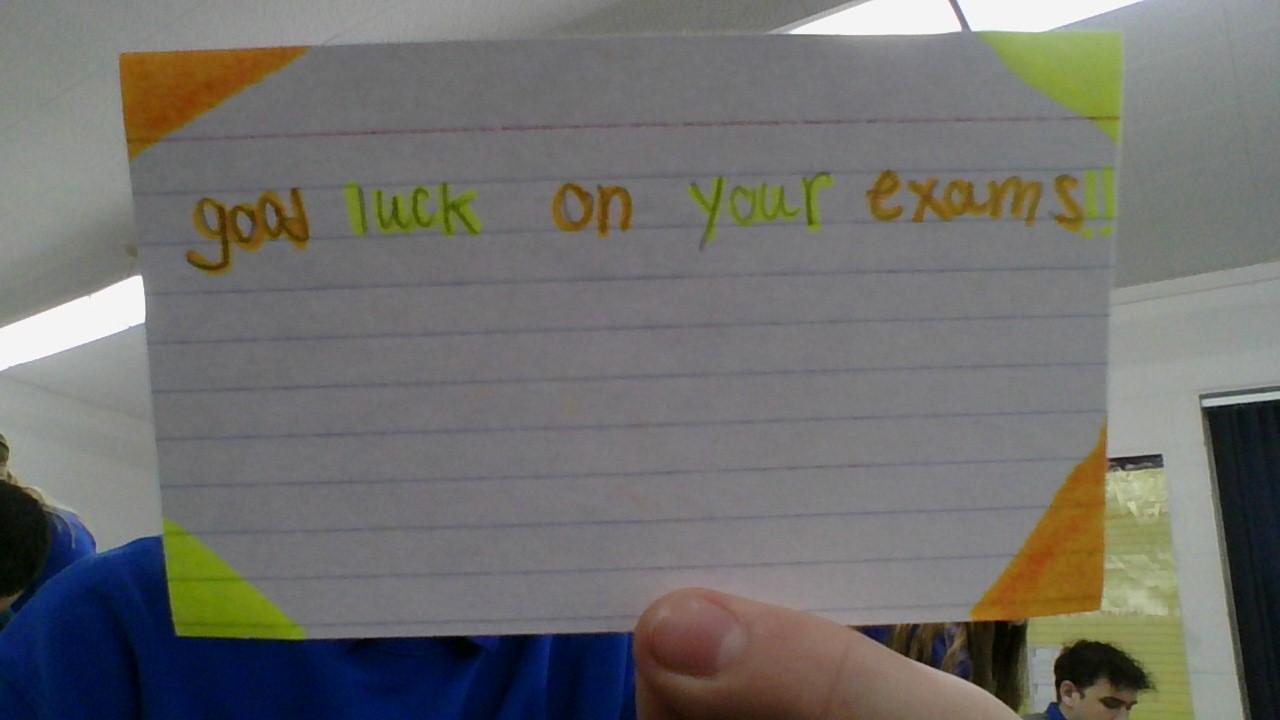 good luck on your exams!!